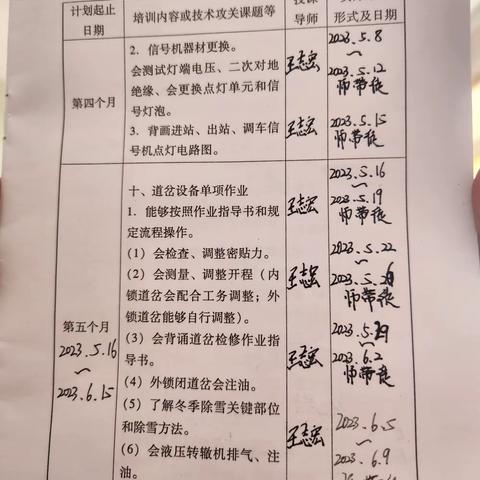 计划起止
日期
培训内容或技术攻关课题等
授课
导师
形式及日期
第四个月
2. 信号机器材更换。
会测试灯端电压、二次对地
绝缘、会更换点灯单元和信
号灯泡。
3. 背画进站、出站、调车信
号机点灯电路图。
王志宏
王志宏
2023.5.8
~
2023.5.12
师带徒
2023.5.15
师带徒
第五个月
2023.5.16
~
2023.6.15
十、道岔设备单项作业
1. 能够按照作业指导书和规
定流程操作。
(1) 会检查、调整密贴力。
(2) 会测量、调整开程（内
锁道岔会配合工务调整；外
锁道岔能够自行调整）。
(3) 会背诵道岔检修作业指
导书。
(4) 外锁闭道岔会注油。
(5) 了解冬季除雪关键部位
和除雪方法。
(6) 会液压转辙机排气、注
油。
王志宏
王志宏
王志宏
王志宏
2023.5.16
~
2023.5.19
师带徒
2023.5.22
~
2023.5.26
师带徒
2023.5.29
~
2023.6.2
师带徒
2023.6.5
~
2023.6.9